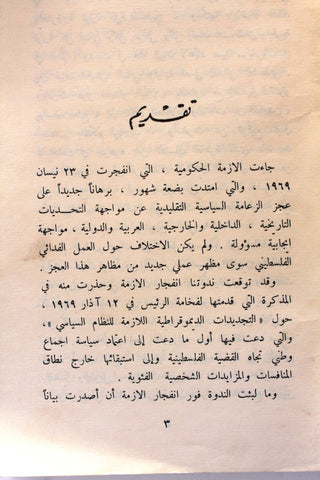 تقديم
جاءت الازمة الحكومية ، التي انفجرت في ٢٣ نيسان
١٩٦٩ ، والتي امتدت بضعة شهور ، برهاناً جديداً على
عجز الزعامة السياسية التقليدية عن مواجهة التحديات
التاريخية ، الداخلية والخارجية ، العربية والدولية ، مواجهة
ايجابية مسؤولة . ولم يكن الاختلاف حول العمل الفدائي
الفلسطيني سوى مظهر عملي جديد من مظاهر هذا العجز .
وقد توقعت ندوتنا انفجار الازمة وحذرت منه في
المذكرة التي قدمتها لفخامة الرئيس في ١٢ آذار ١٩٦٩ ،
حول « التجديدات الديموقراطية اللازمة للنظام السياسي » ،
والتي دعت فيها أول ما دعت إلى اعتماد سياسة اجماع
وطني تجاه القضية الفلسطينية وإلى استبقائها خارج نطاق
المنافسات والمزايدات الشخصية الفئوية .
وما لبثت الندوة فور انفجار الازمة أن أصدرت بياناً
٣